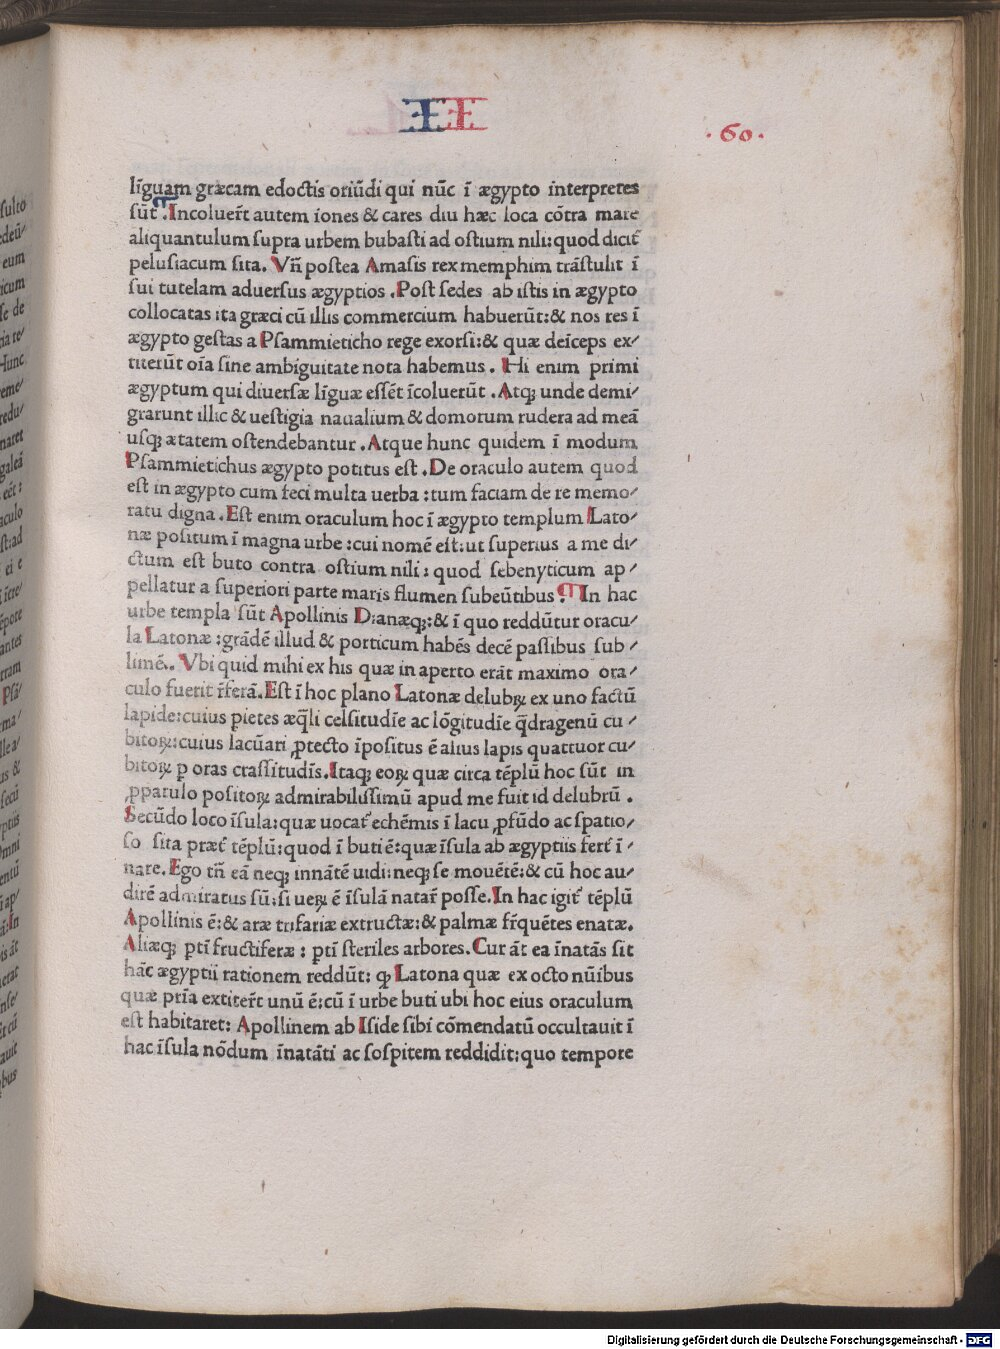 II
·60·
lĩguam græcam edoctis oriũdi qui nũc ĩ ægypto interpretes
sũt. Incoluer̃t autem iones & cares diu hæc loca cõtra mare
aliquantulum supra urbem bubasti ad ostium nili: quod dicit᷑
pelusiacum sita. Vñ postea Amasis rex memphim trãstulit ĩ
sui tutelam aduersus ægyptios. Post sedes ab istis in ægypto
collocatas: ita græci cũ illis commercium habuerũt: & nos res ĩ
ægypto gestas a Psammieticho rege exorsi: & quæ deĩceps ex⸗
titerũt oĩa sine ambiguitate nota habemus. Hi enim primi
ægyptum qui diuersæ lĩguæ essẽt ĩcoluerũt. Atqꝫ unde demi⸗
grarunt illic & uestigia naualium & domorum rudera ad meã
usqꝫ ætatem ostendebantur. Atque hunc quidem ĩ modum
Psammietichus ægypto potitus est. De oraculo autem quod
est in ægypto cum feci multa uerba: tum faciam de re memo⸗
ratu digna. Est enim oraculum hoc ĩ ægypto templum Lato⸗
næ positum ĩ magna urbe: cui nomẽ est: ut superius a me di⸗
ctum est buto contra ostium nili: quod sebenyticum ap⸗
pellatur a superiori parte maris flumen subeũtibus. ¶ In hac
urbe templa sũt Apollinis Dianæqꝫ: & ĩ quo reddũtur oracu⸗
la Latonæ: grãdẽ illud & porticum habẽs decẽ passibus sub⸗
limẽ. Vbi quid mihi ex his quæ in aperto erãt maximo ora⸗
culo fuerit r̃ferã. Est ĩ hoc plano Latonæ delubꝝ ex uno factũ
lapide: cuius pietes æq̃li celsitudĩe ac lõgitudĩe q̃dragenũ cu⸗
bitoꝝ: cuius lacũari ꝓtecto ĩpositus ẽ alius lapis quattuor cu⸗
bitoꝝ p oras crassitudĩs. Itaqꝫ eoꝝ quæ circa tẽplũ hoc sũt in
ꝓpatulo positoꝝ admirabilissimũ apud me fuit id delubrũ.
Secũdo loco ĩsula: quæ uocat᷑ echẽmis ĩ lacu ꝓfũdo ac spatio⸗
so sita præt᷑ tẽplũ: quod ĩ buti ẽ: quæ ĩsula ab ægyptiis fert᷑ ĩ⸗
nare. Ego tñ eã neqꝫ innãtẽ uidi: neqꝫ se mouẽtẽ: & cũ hoc au⸗
dirẽ admiratus sũ: si ueꝝ ẽ ĩsulã natar̃ posse. In hac igit᷑ tẽplũ
Apollinis ẽ: & aræ trifariæ extructæ: & palmæ fr̃quẽtes enatæ.
Aliæqꝫ ptĩ fructiferæ: ptĩ steriles arbores. Cur ãt ea ĩnatãs sit
hãc ægyptii rationem reddũt: ꝙ Latona quæ ex octo nũibus
quæ prĩa extiter̃t unũ ẽ: cũ ĩ urbe buti ubi hoc eius oraculum
est habitaret: Apollinem ab Iside sibi cõmendatũ occultauit ĩ
hac ĩsula nõdum ĩnatãti ac sospitem reddidit: quo tempore
Digitalisierung gefördert durch die Deutsche Forschungsgemeinschaft - DFG